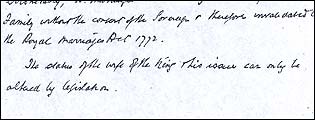 Family without the consent of the Sovereign & therefore invalidated
the Royal Marriages Act 1772.
The status of the wife of the King & his issue can only be
altered by legislation.